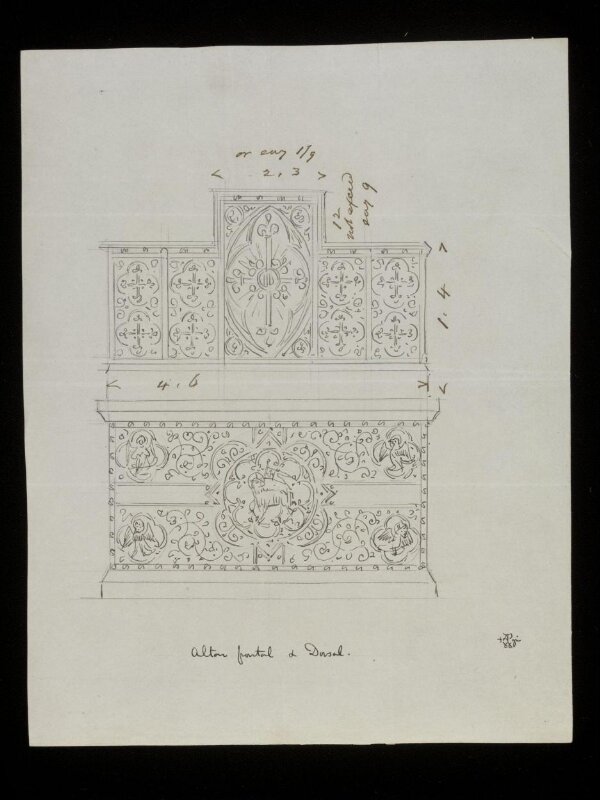 or say 1'/9
2, 3
12
not exceed
say 9
1. 4
4. 6
Altar frontal & Dorsal.